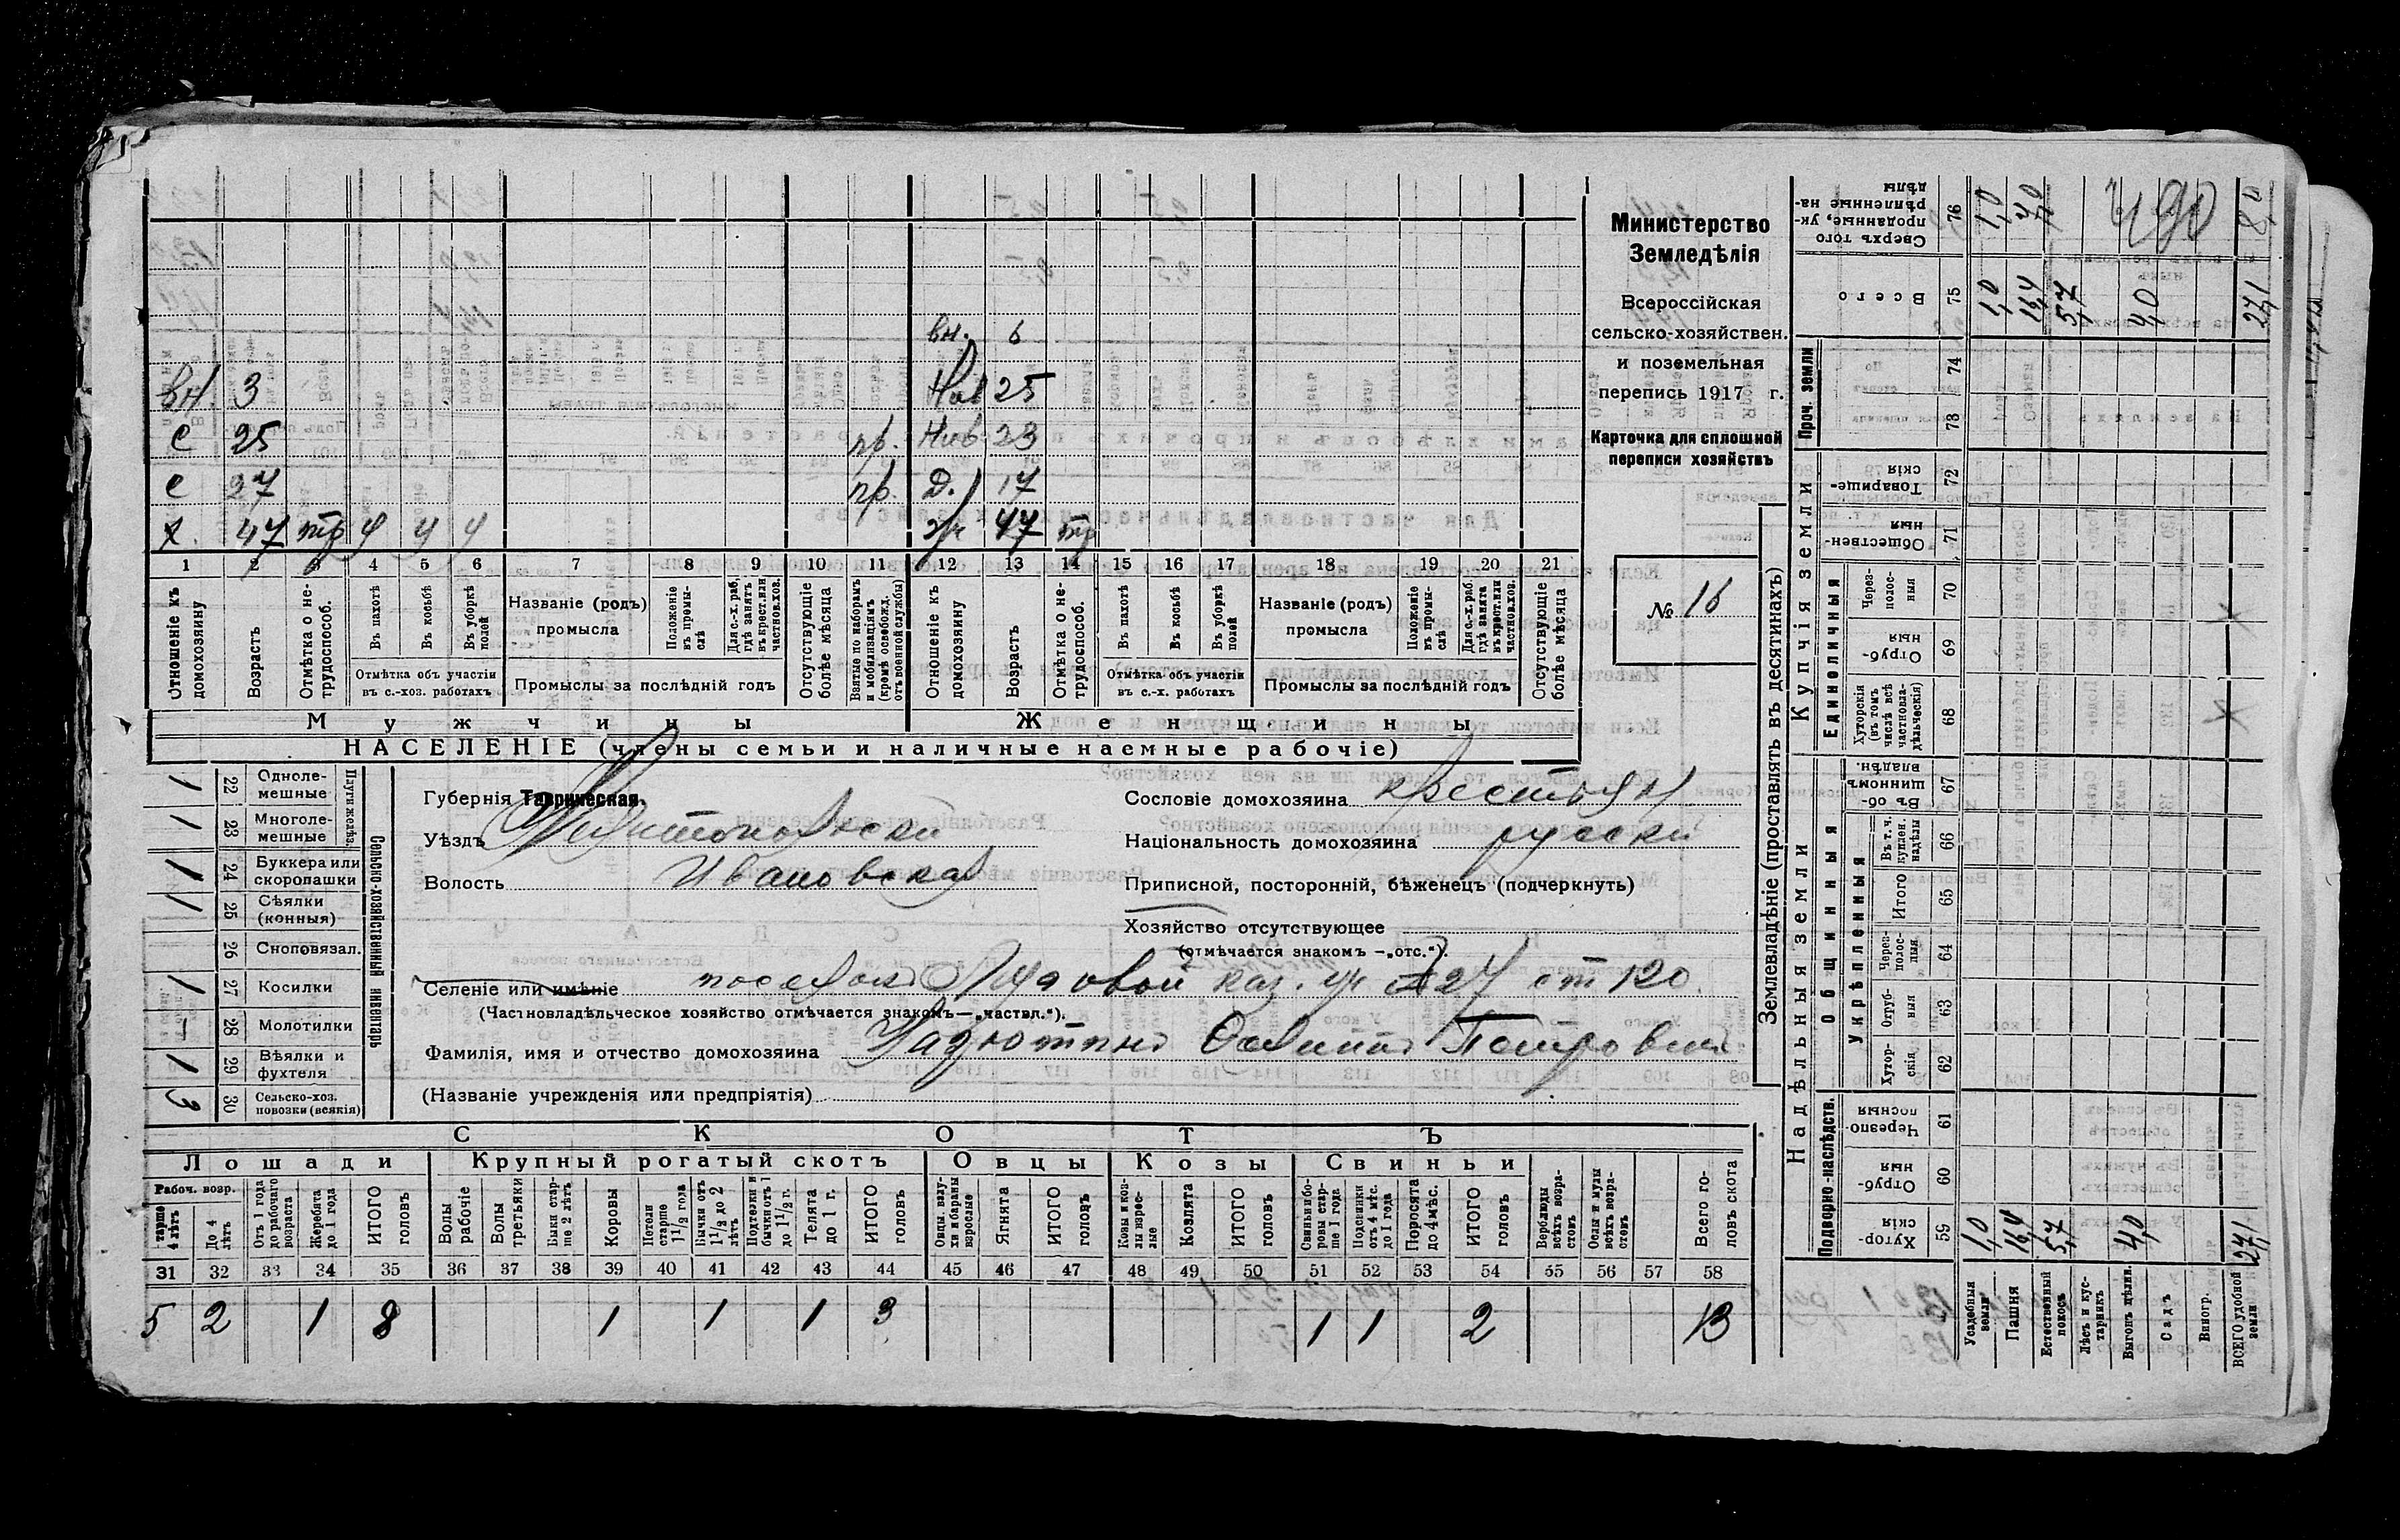 Министерство
Земледѣлія
Всероссійская
сельско-хозяйствен.
и поземельная
перепись 1917 г.
Карточка для сплошной
переписи хозяйствъ
№ 16
вн. 6
вн. 3 Нев 25
С 25 пр. Нев 23
С 27 пр. Д. 17
х. 47 тр у у у ж 47 тр
1 2 3 4 5 6 7 8 9 10 11 12 13 14 15 16 17 18 19 20 21
Отношеніе къ домохозяину
Возрастъ
Отмѣтка о не-трудоспособ.
Въ пахотѣ
Въ косьбѣ
Въ уборкѣ полей
Отмѣтка объ участіи въ с.-хоз. работахъ
Названіе (родъ) промысла
Положеніе въ промы-слѣ
Для с.-х. раб., гдѣ занятъ въ крест. или частнов. хоз.
Промыслы за послѣдній годъ
Отсутствующіе болѣе мѣсяца
Взятые по наборамъ и мобилизаціямъ (кромѣ освобожд. отъ военной службы)
Отношеніе къ домохозяину
Возрастъ
Отмѣтка о не-трудоспособ.
Въ пахотѣ
Въ косьбѣ
Въ уборкѣ полей
Отмѣтка объ участіи въ с.-х. работахъ
Названіе (родъ) промысла
Положеніе въ промы-слѣ
Для с.-х. раб. гдѣ занята въ крест. или частнов. хоз.
Промыслы за послѣдній годъ
Отсутствующіе болѣе мѣсяца
Мужчины Женщины
НАСЕЛЕНІЕ (члены семьи и наличные наемные рабочіе)
Сельско-хозяйственный инвентарь
Плуги желѣз.
1 22 Одноле-мешные
1 23 Многоле-мешные
1 24 Буккера или скоропашки
1 25 Сѣялки (конныя)
26 Сноповязал.
1 27 Косилки
28 Молотилки
1 29 Вѣялки и фухтеля
3 30 Сельско-хоз. повозки (всякія)
Губернія Таврическая.
Уѣздъ Мелитопольски
Волость Ивановская
Сословіе домохозяина крестьян
Національность домохозяина русски
Приписной, посторонній, бѣженецъ (подчеркнуть)
Хозяйство отсутствующее
(отмѣчается знакомъ —„отс.“).
Селеніе или имѣніе поселокъ Луговой каз. уч 27 от 120.
(Частновладѣльческое хозяйство отмѣчается знакомъ—„частвл.“).
Фамилія, имя и отчество домохозяина Осипъ Петрович
(Названіе учрежденія или предпріятія)
СКОТЪ
Лошади Крупный рогатый скотъ Овцы Козы Свиньи
Рабоч. возр.
старше 4 лѣтъ
До 4 лѣтъ
Отъ 1 года до рабочаго возраста
Жеребята до 1 года
ИТОГО головъ
Волы рабочіе
Волы третьяки
Быки стар-ше 2 лѣтъ
Коровы
Нетели старше 1 1/2 года
Бычки отъ 1 1/2 до 2 лѣтъ
Подтелки и бычки отъ 1 до 1 1/2 г.
Телята до 1 г.
ИТОГО головъ
Овцы, валу-хи и бараны взрослые
Ягнята
ИТОГО головъ
Козы и коз-лы взрос-лые
Козлята
ИТОГО головъ
Свиньи и бо-ровы стар-ше 1 года
Подсвинки отъ 4 мѣс. до 1 года
Поросята до 4 мѣс.
ИТОГО головъ
Верблюды всѣхъ возра-стовъ
Ослы и мулы всѣхъ возра-стовъ
Всего го-ловъ скота
31 32 33 34 35 36 37 38 39 40 41 42 43 44 45 46 47 48 49 50 51 52 53 54 55 56 57 58
5 2 1 8 1 1 1 3 1 1 2 13
Землевладѣніе (проставлять въ десятинахъ)
Сверхъ того проданные, ук-рѣпленные на-дѣлы 76 1,0 7,0 8,0
490
Всего 75 1,0 16,4 5,7 4,0 27,1
Проч. земли 74 73
Купчія земли
Товарище-скія 72
Обществен-ныя 71
Единоличныя
Через-полос-ныя 70
Отруб-ныя 69
Хуторскія (въ томъ числѣ всѣ частновла-дѣльческія) 68
Надѣльныя земли
Общинныя
Въ об-щинномъ владѣн. 67
Укрѣпленныя
Въ т. ч. куплен. надѣлы 66
Итого 65
Через-полос-ныя 64
Отруб-ныя 63
Хутор-скія 62
Подворно-наслѣдств.
Черезпо-лосныя 61
Отруб-ныя 60
Хутор-скія 59 1,0 16,4 5,7 4,0 27,1
Усадебныя земли
Пашня
Естественный покосъ
Лѣсъ и кус-тарникъ
Выгонъ цѣлин.
Садъ
Виногр.
ВСЕГО удобной земли